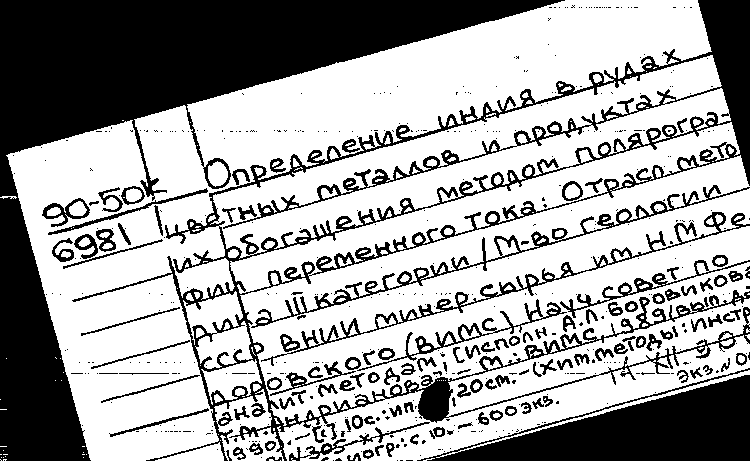 90-50к
6981
Определение индия в рудах
цветных металлов и продуктах
их обогащения методом полярогра-
фии переменного тока: Отрасл. мето
дика III категории / М-во геологии
СССР, ВНИИ минер. сырья им. Н.М. Фе
доровского (ВИМС), Науч. совет по
аналит. методам; [исполн. А.Л. Боровикова
Т.М. Андрианова]. - М.: ВИМС, 1989 (вып. да
1990). - [1], 10с.: ил.; 20см. - (Хим. методы: Инстр
N 305-х).
с. 10. - 600 экз.
14.XII.90
экз. N